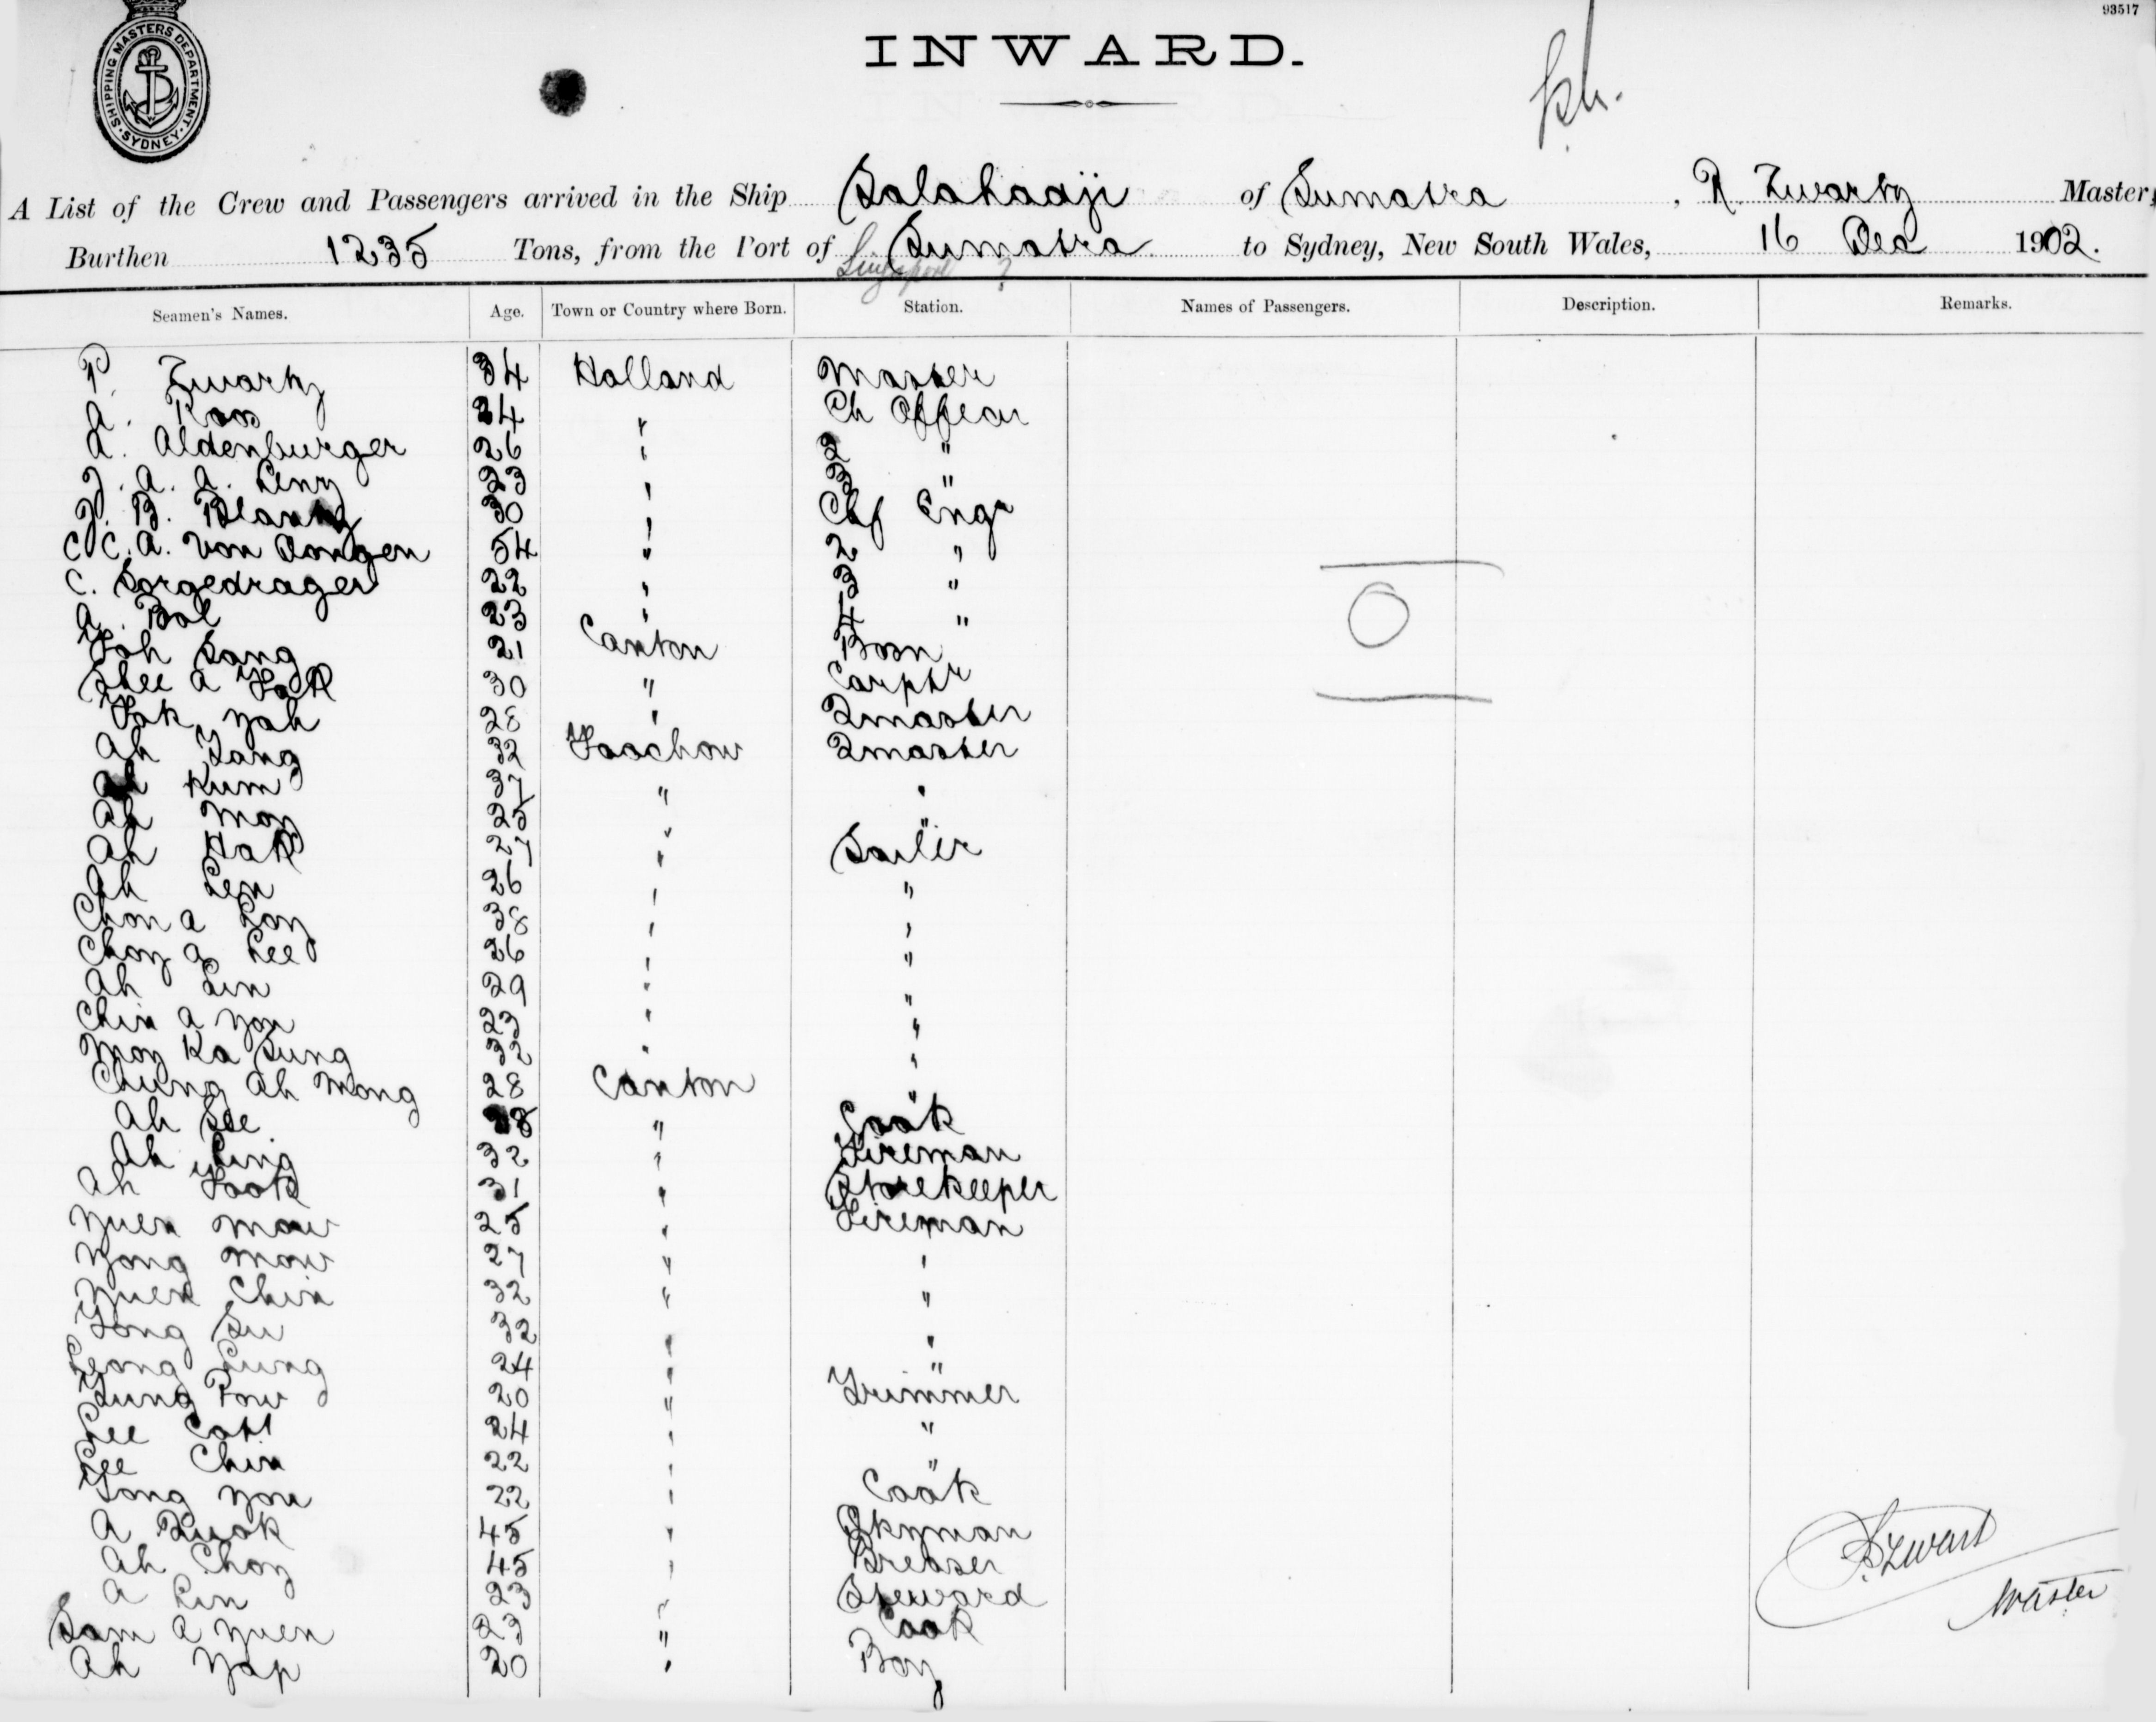 93517
SHIPPING MASTERS DEPARTMENT. SYDNEY
INWARD.
A List of the Crew and Passengers arrived in the Ship Salahadji of Sumatra, P. Zwartz Master,
Burthen 1235 Tons, from the Port of Sumatra to Sydney, New South Wales, 16 Dec 1902.
Singapore ?
Seamen's Names. Age. Town or Country where Born. Station. Names of Passengers. Description. Remarks.
P. Zwartz 34 Holland Master
A. Roos 24 " Ch Officer
A. Aldenburger 26 " 2 "
J. A. A. Leny 23 " 3 "
J. B. 30 " Chf Engr
C. C. A. Von Dongen 54 " 2 "
C. Sorgedrager 22 " 3 "
A. Bol 23 " 4 "
Foh Sang 21 Canton Bosn
Shee A Fook 30 " Carptr
Fok Yah 28 " Qmaster
Ah Fang 32 Foochow Qmaster
Ah Kum 37 " "
Ah Moy 25 " "
Ah Hak 27 " Sailer
Ah Len 26 " "
Chon a Loy 38 " "
Choy a Lee 26 " "
Ah Lin 29 " "
Chin a You 23 " "
Moy Ka Sung 32 " "
Chung Ah Mong 28 Canton "
Ah See 38 " Cook
Ah Ling 32 " Fireman
Ah Fook 31 " Storekeeper
Yuen Mow 25 " Fireman
Yong Mow 27 " "
Yuen Chin 32 " "
Fong Su 32 " "
Leong Lung 24 " "
Fung Pow 20 " Trimmer
Lee Catt 24 " "
Lee Chin 22 " "
Fong You 22 " Cook
A Quok 45 "
Ah Choy 45 " Greaser
A Lin 23 " Steward
Sam a Yuen 23 " Cook
Ah Yap 20 " Boy
0
P. Zwart
Master